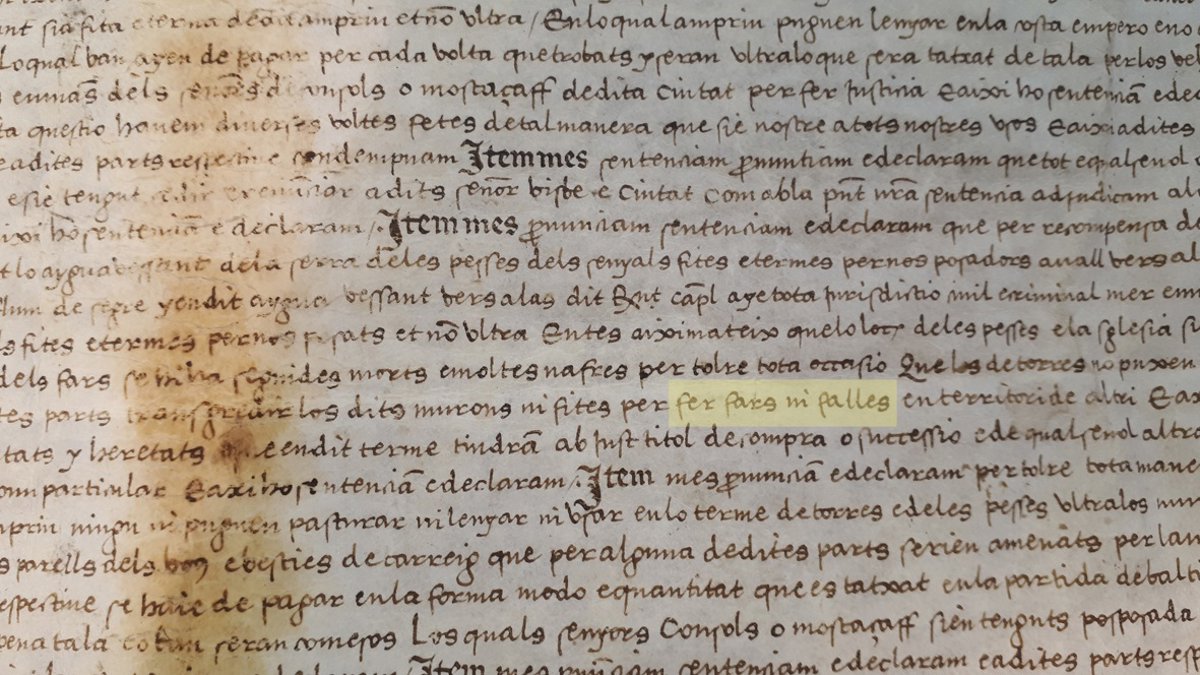 sia fita eterna dedit ampriu et nõ ultra / En loqual ampriu puguen lenyar en la vista empero en
Loqual ban ayen de pagar per cada volta que trobats y seran ultra lo que sera tatxat de tala per los
dels señõs de consols o mostaçaff de dita Ciutat per fer Justicia E aixi ho sentenciã
questio havem diverses voltes fetes de tal manera que sie nostre a tots nostres vsos E aixi a dites
e a dites parts respective condempnam Item mes sentenciam pronuntiam e declaram que tot
e sie tengut renũciar a dits señor bisbe e Ciutat Com ab la pñt nrã sentencia adjudicam
ho sentenciã e declaram / Item mes pronunciam sentenciam e declaram que per recompensa
lo aygua vessant de la serra de les pesses dels senyals fites e termes per nos posadors avall vers
de segre y en dit aygua vessant vers alas dit Rnt capl aye tota Jurisdictio mer
fites e termes per nos posats et nõ ultra Entes aixi mateix que lo loch de les pesses e la sglesia
dels fars se hi ha seguides morts e moltes nafres per tolre tota occasio Que los de torres no puxen
parts transgredir los dits murons ni fites per fer fars ni falles en territori de altri
y heretats que en dit terme tindrã ab Just titol de compra o successio e de qual se vol
particular E axi ho sentenciã e declaram / Item mes pronunciã e declaram per tolre tota
ampriu ningu ni puguen pasturar ni lenyar ni vsar en lo terme de torres e de les pesses ultra los
parells dels bous e besties de carreig que per alguna de dites parts serien amenats per
se haie de pagar en la forma modo e quantitat que es tatxat en la partida
pena tala seran comesos Los quals senyors Consols o mostaçaff sien tenguts posposada
Item mes sentenciam e declaram e a dites parts